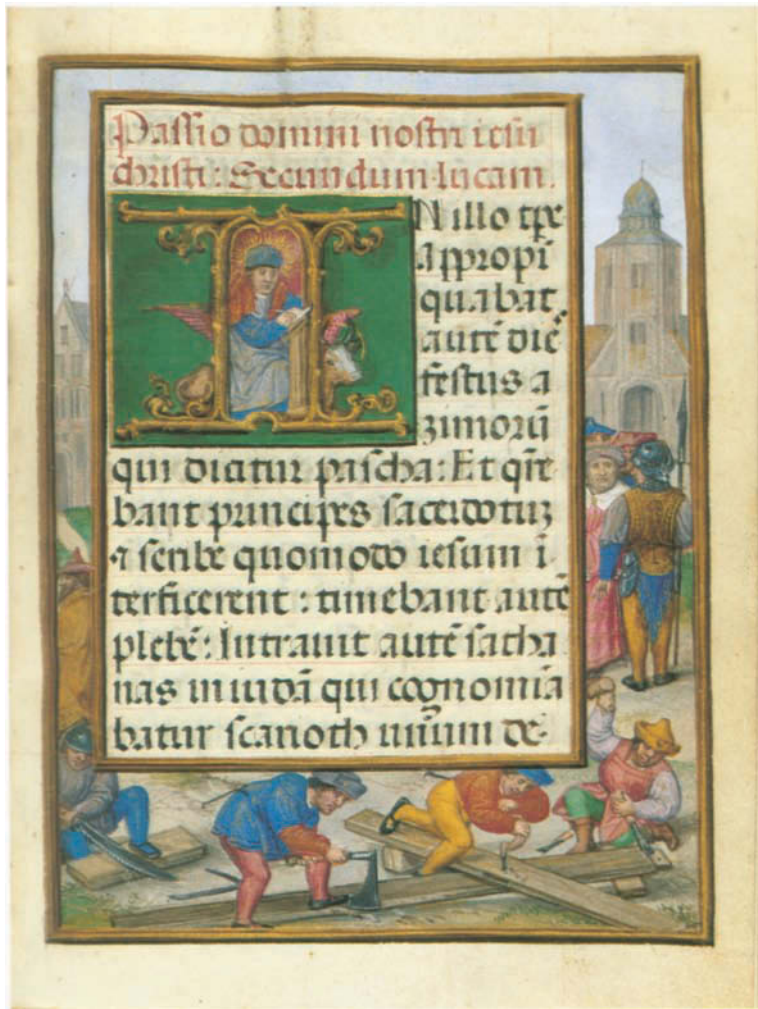 Passio domini nostri iesu
christi: Secundum lucam.
IN illo tp̄e
appropi
quabat
autē diē
festus a
zimorū
qui dicitur pascha: Et q̄re
bant principes sacerdotuʒ
⁊ scribe quomodo iesum ī
terficerent: timebant autē
plebē: Intravit autē satha
nas in iudā qui cognomīa
batur scarioth unum de